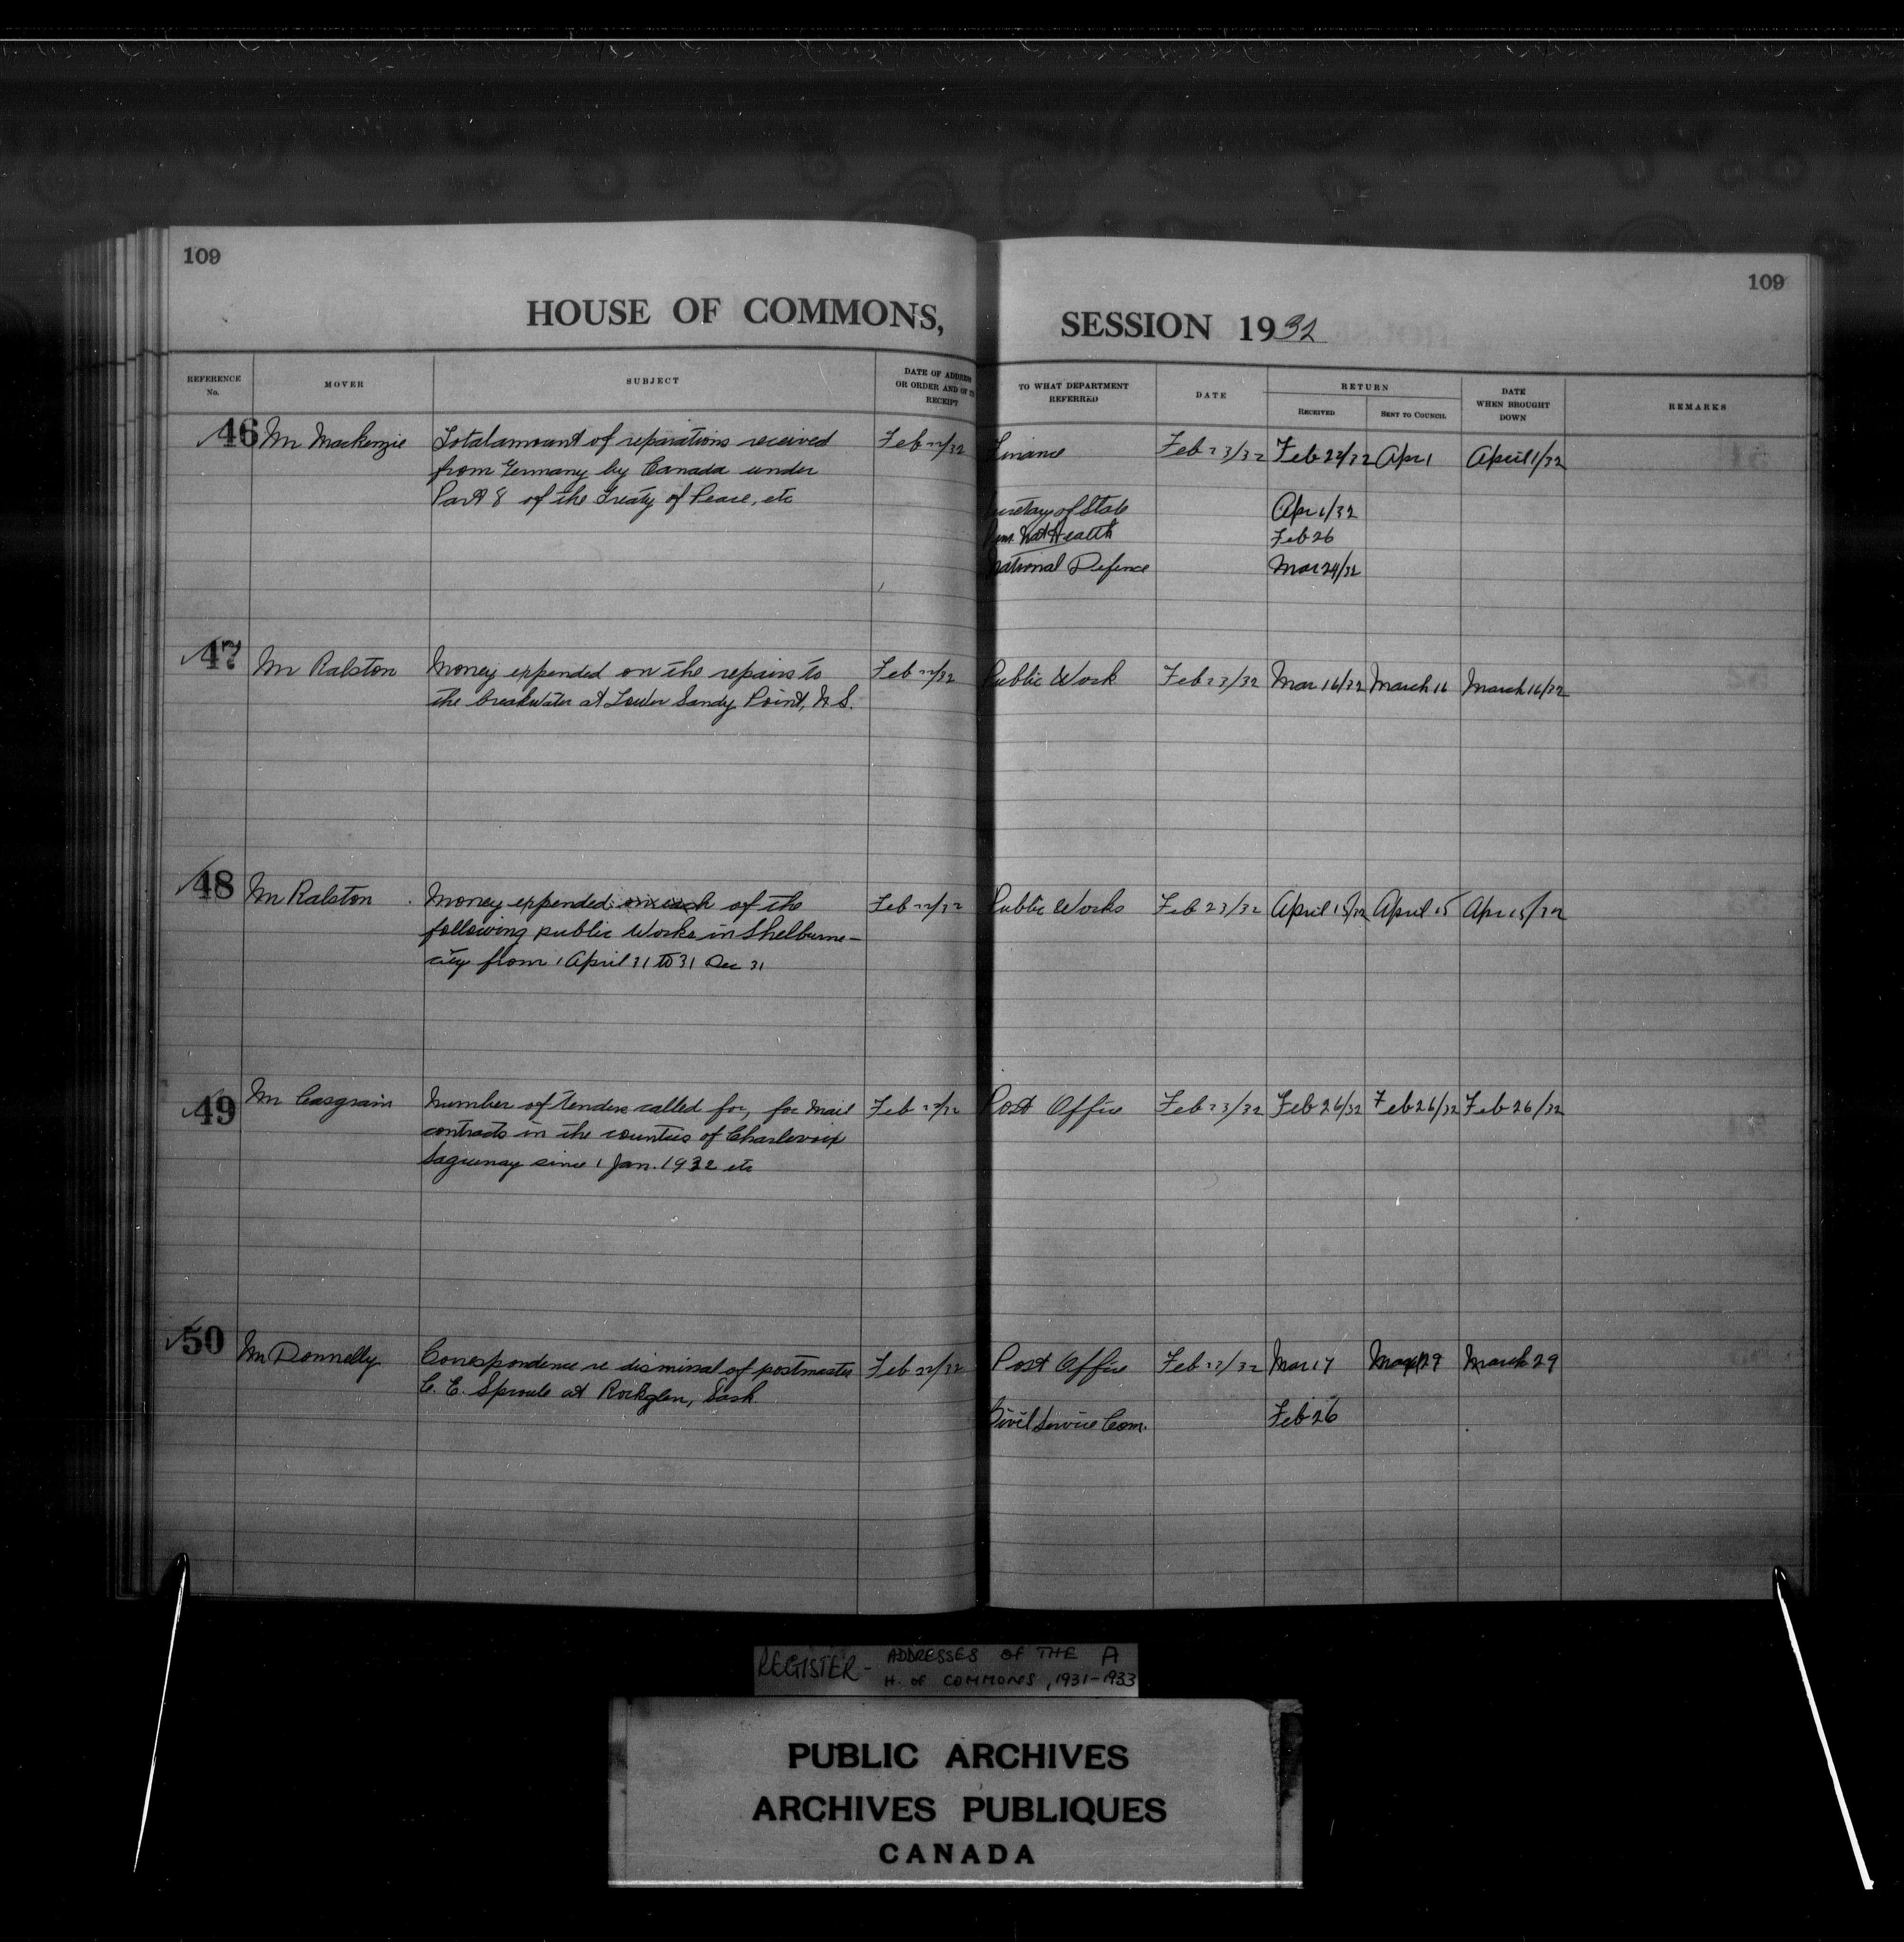 109
109
HOUSE OF COMMONS, SESSION 1932
REFERENCE No. MOVER SUBJECT DATE OF ADDRESS OR ORDER AND OF ITS RECEIPT TO WHAT DEPARTMENT REFERRED DATE RETURN RECEIVED SENT TO COUNCIL DATE WHEN BROUGHT DOWN REMARKS
46 Mr Mackenzie Total amount of reparations received Feb 22/32 Finance Feb 23/32 Feb 29/32 Apr 1 April 1/32
from Germany by Canada under
Part 8 of the Treaty of Peace, etc
Secretary of State Apr 1/32
Nat Health Feb 26
National Defence Mar 24/32
47 Mr Ralston Money expended on the repairs to Feb 22/32 Public Work Feb 23/32 Mar 16/32 March 16 March 16/32
the breakwater at Lower Sandy Point, N S.
48 Mr Ralston Money expended on each of the Feb 22/32 Public Works Feb 23/32 April 15/32 April 15 Apr 15/32
following public Works in Shelburne-
city from 1 April 31 to 31 Dec 31
49 Mr Casgrain Number of tenders called for, for mail Feb 22/32 Post Office Feb 23/32 Feb 26/32 Feb 26/32 Feb 26/32
contracts in the counties of Charlevoix
Saguenay since 1 Jan. 1932 etc
50 Mr Donnelly Correspondence re dismissal of postmaster Feb 22/32 Post Office Feb 23/32 Mar 17 29 March 29
C. E. Sproule at Rockglen, Sask.
Civil Service Com. Feb 26
REGISTER - ADDRESSES OF THE A
H. of COMMONS, 1931-1933
PUBLIC ARCHIVES
ARCHIVES PUBLIQUES
CANADA